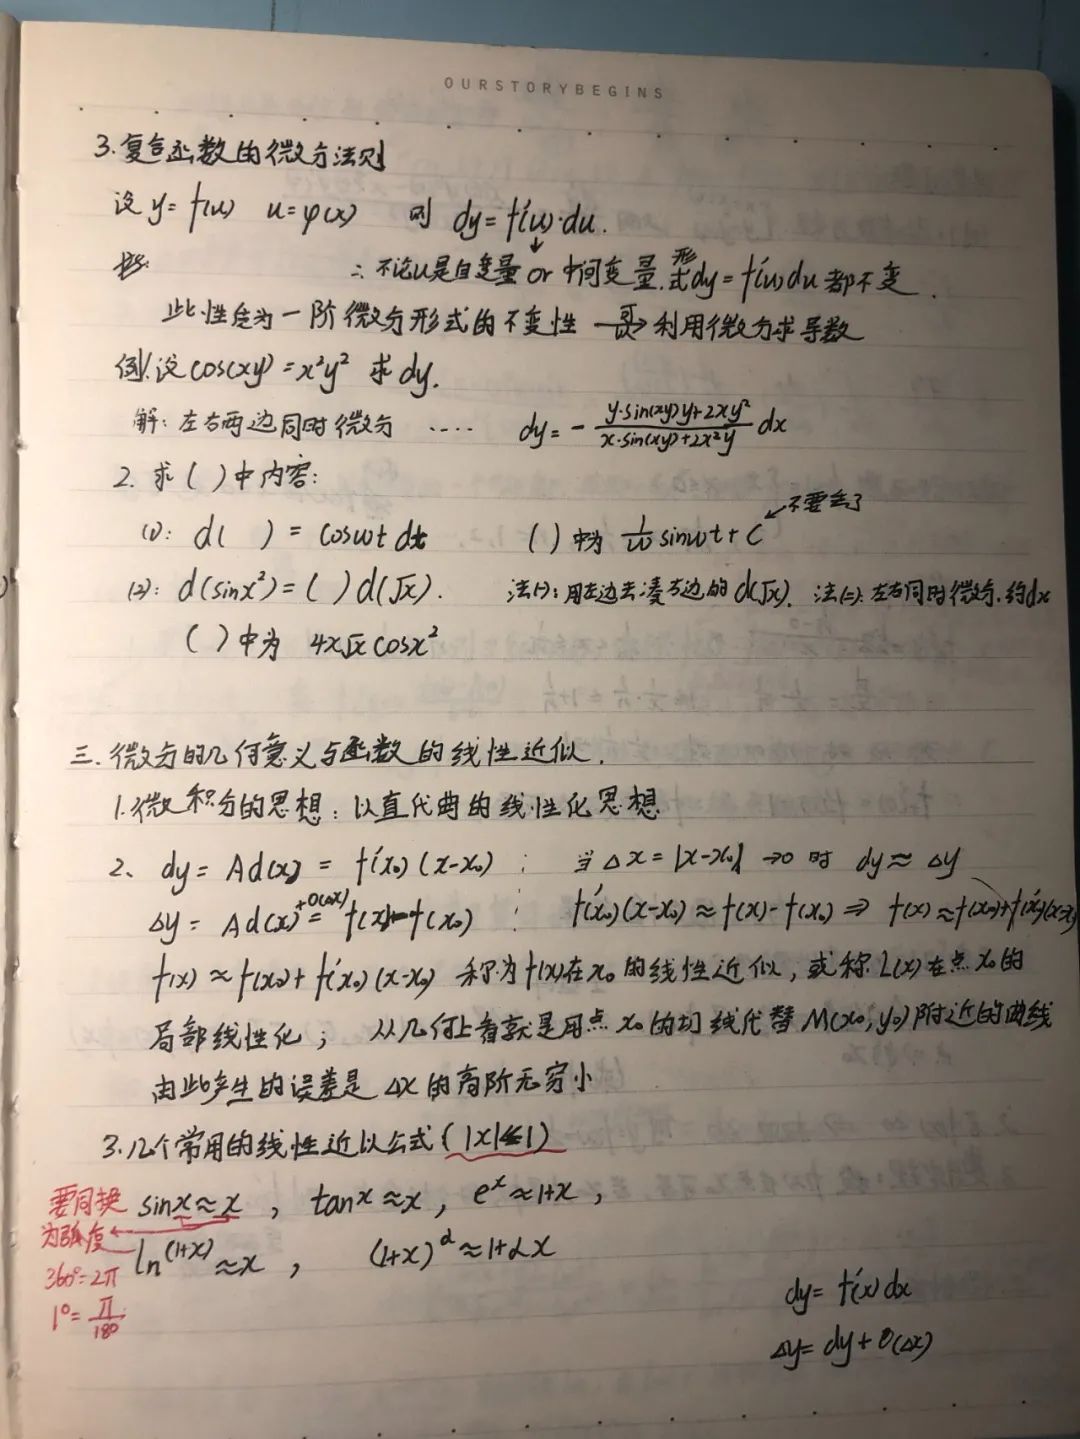 OURSTORYBEGINS
3.复合函数的微分法则
设 y=f(u) u=φ(x) 则 dy=f'(u)·du.
∴不论u是自变量 or 中间变量.形式dy=f'(u)du都不变.
此性质为一阶微分形式的不变性 → 利用微分求导数
例1.设cos(xy)=x²y² 求dy.
解:左右两边同时微分 ···· dy=-\frac{y·sin(xy)y+2xy²}{x·sin(xy)+2x²y}dx
2. 求( )中内容:
不要丢了
(1): d( )=cosωt dt ( )中为 \frac{1}{ω}sinωt+C
(2): d(sinx²)=( )d(√x). 法(一):用左边去凑右边的d(√x). 法(二):左右同时微分.约dx
( )中为 4x√x cosx²
三.微分的几何意义与函数的线性近似.
1.微积分的思想:以直代曲的线性化思想
2、dy=Ad(x)=f'(x₀)(x-x₀) ; 当Δx=|x-x₀|→0时 dy≈Δy
Δy=Ad(x)+o(Δx)=f(x)-f(x₀) ; f'(x₀)(x-x₀)≈f(x)-f(x₀) ⇒ f(x)≈f(x₀)+f'(x₀)(x-x₀)
f(x)≈f(x₀)+f'(x₀)(x-x₀) 称为f(x)在x₀的线性近似,或称L(x)在点x₀的
局部线性化; 从几何上看就是用点x₀的切线代替M(x₀,y₀)附近的曲线
由此产生的误差是Δx的高阶无穷小
3.几个常用的线性近似公式(|x|≪1)
要同换 sinx≈x , tanx≈x, eˣ≈1+x,
为弧度 ln(1+x)≈x , (1+x)^α≈1+αx
360°=2π
1°=\frac{π}{180}
dy=f'(x)dx
Δy=dy+o(Δx)